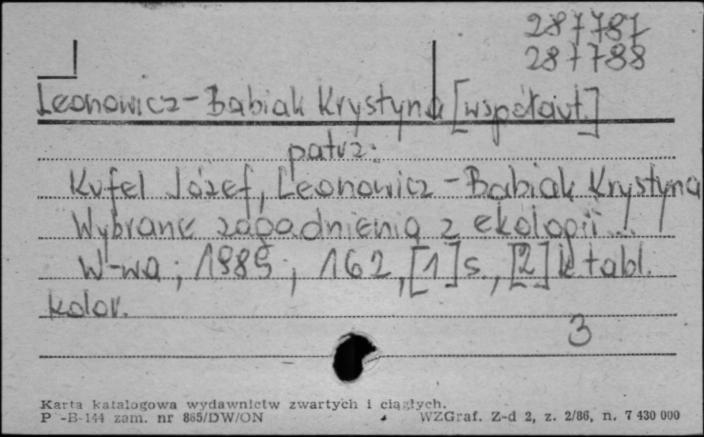 287787
287788
Leonowicz-Babiak Krystyna [współaut.]
patrz:
Kufel Józef, Leonowicz-Babiak Krystyna
Wybrane zagadnienia z ekologii...
W-wa; 1989; 162, [1] s., [2] k tabl.
kolor.
3
Karta katalogowa wydawnictw zwartych i ciągłych.
P-B-144 zam. nr 865/DW/ON WZGraf. Z-d 2, z. 2/86, n. 7 430 000